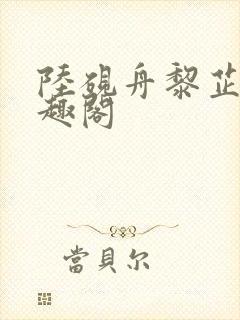 陸硯舟黎芷
趣閣
當貝尔